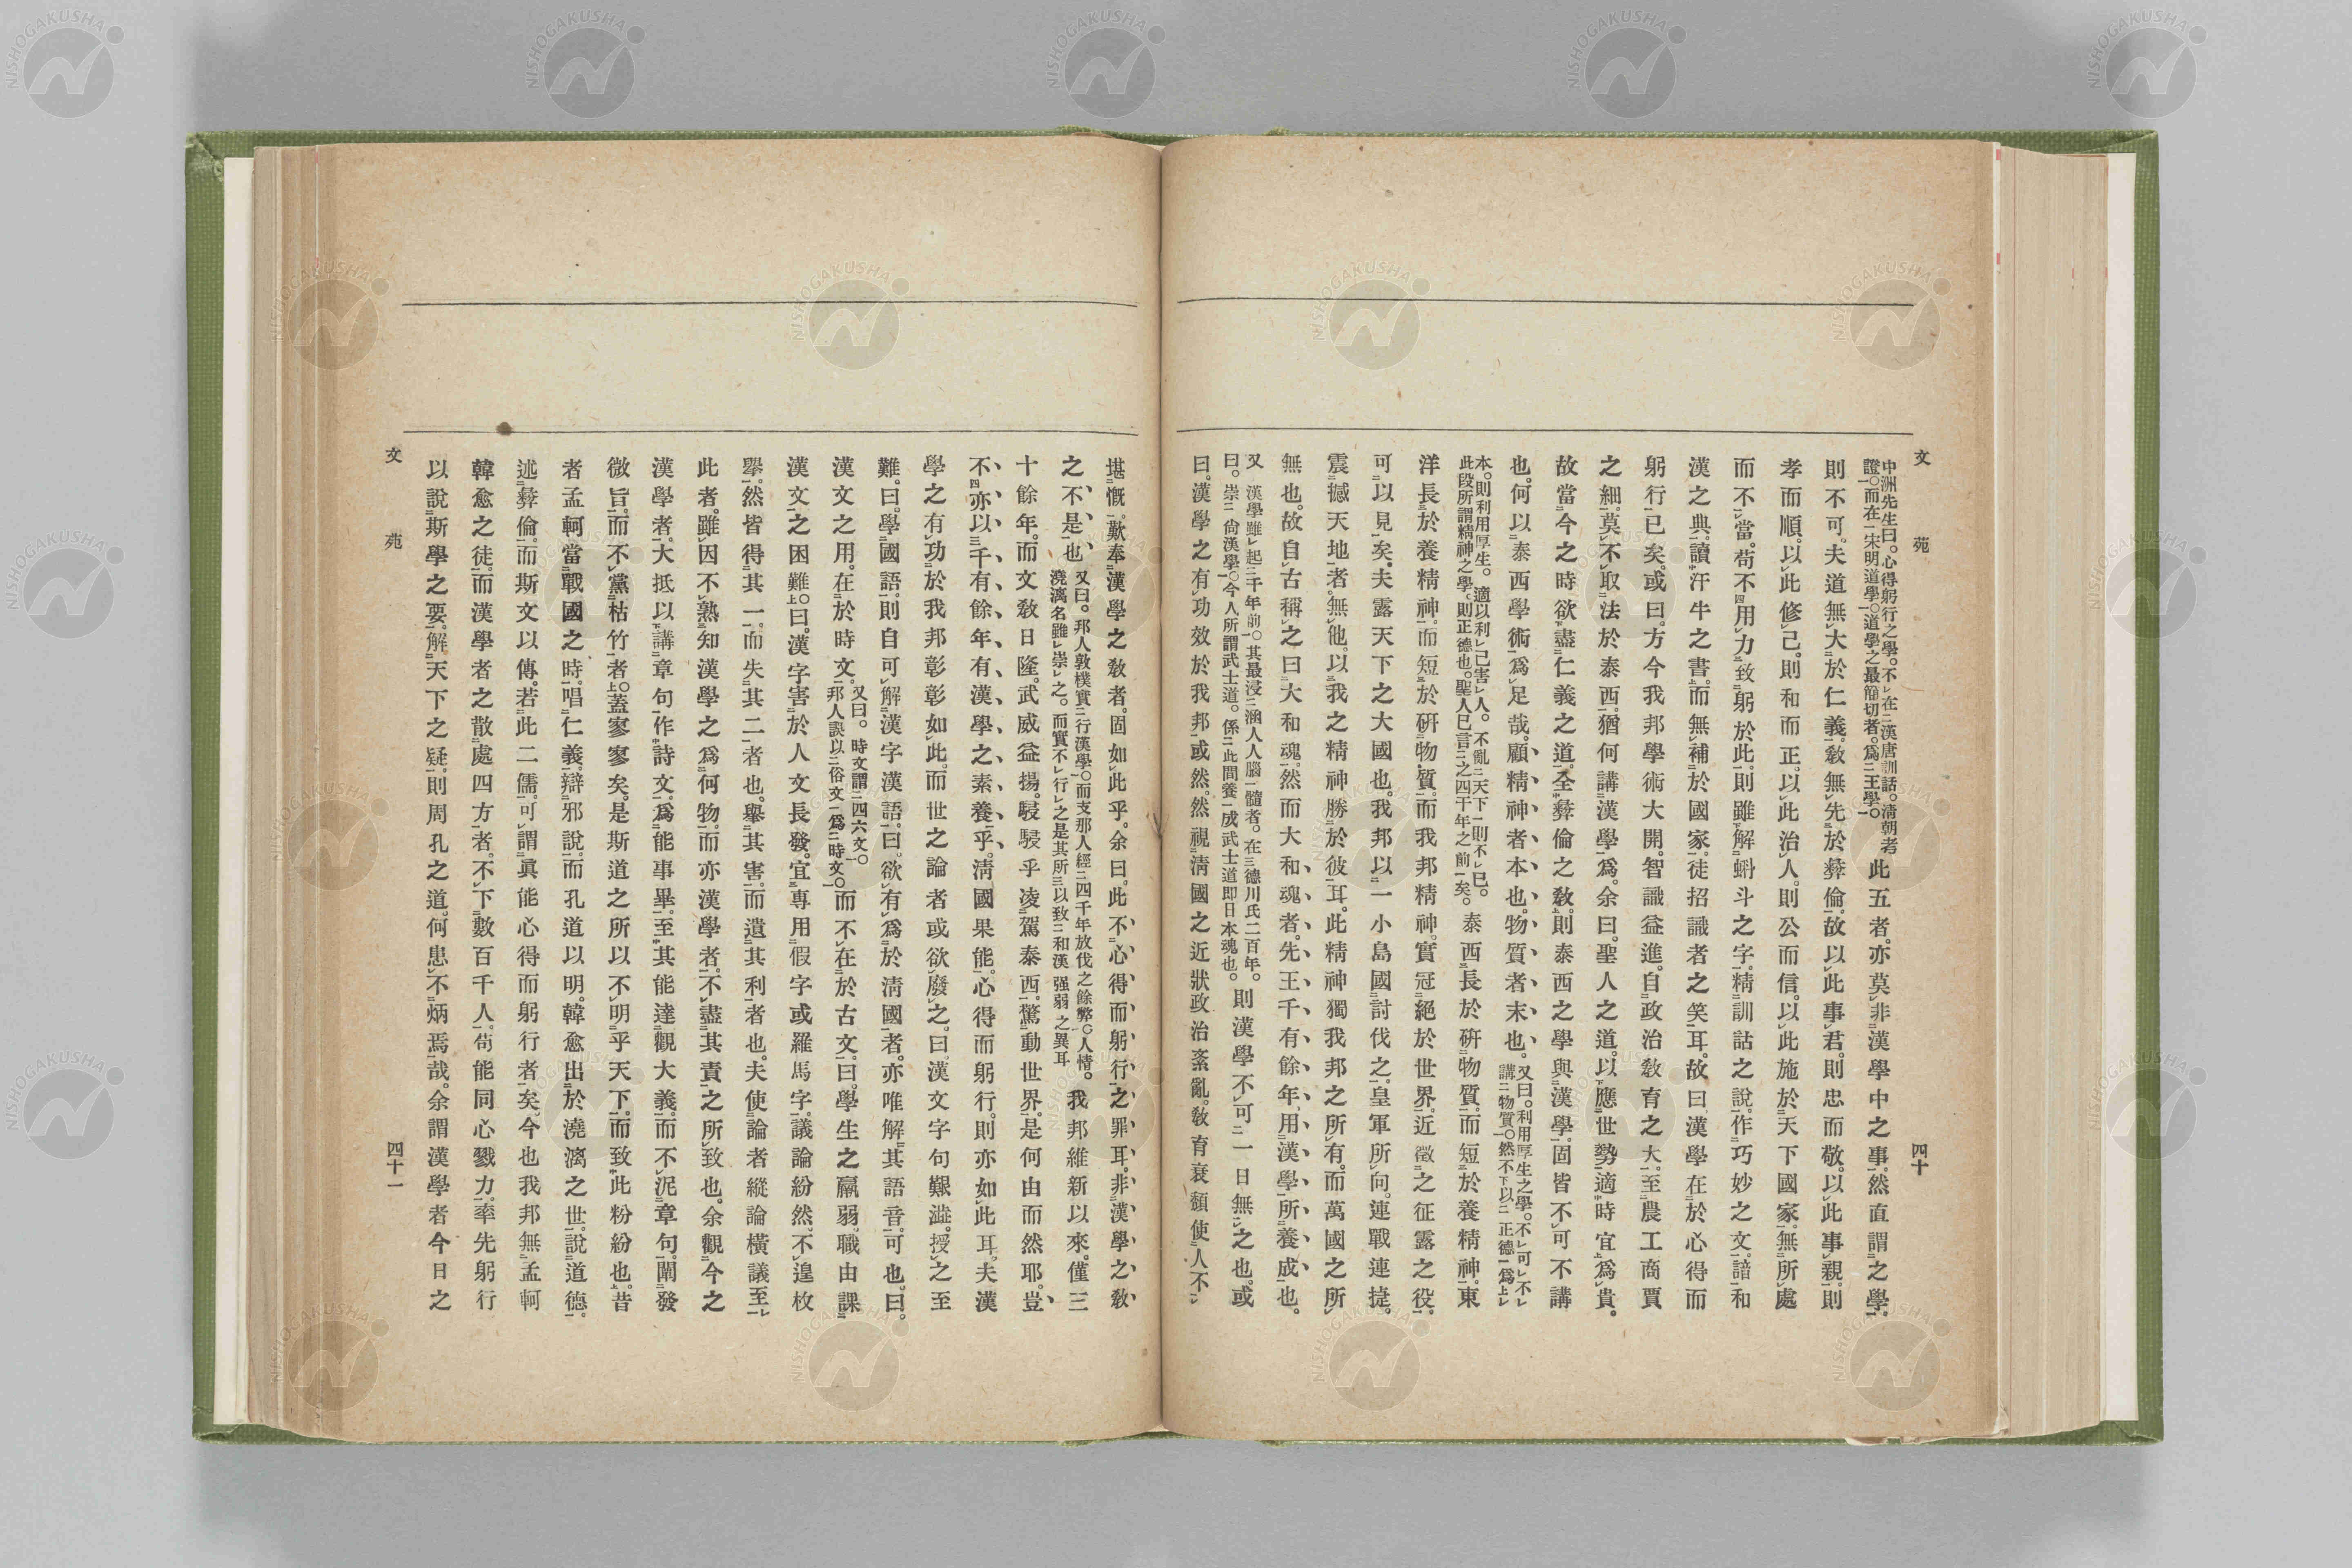 文苑
四十
中洲先生曰。心得躬行之學。不在漢唐訓詁。淸朝考
證。而在宋明道學。道學之最簡切者。爲王學。
此五者。亦莫非漢學中之事。然直謂之學。
則不可。夫道無大於仁義。敎無先於彜倫。故以此事君。則忠而敬。以此事親。則
孝而順。以此修己。則和而正。以此治人。則公而信。以此施於天下國家。無所處
而不當。苟不用力致躬於此。則雖解蝌斗之字。精訓詁之說。作巧妙之文。諳和
漢之典。讀汗牛之書。而無補於國家。徒招識者之笑耳。故曰漢學在於心得而
躬行已矣。或曰。方今我邦學術大開。智識益進。自政治敎育之大。至農工商賈
之細。莫不取法於泰西。猶何講漢學爲。余曰。聖人之道。以應世勢適時宜爲貴。
故當今之時。欲盡仁義之道。全彜倫之敎。則泰西之學與漢學。固皆不可不講
也。何以泰西學術爲足哉。顧精神者本也。物質者末也。
又曰。利用厚生之學。不可不
講物質。然不以正德爲
本。則利用厚生。適以利己害人。不亂天下則不已。
此段所謂精神之學。則正德也。聖人已言之四千年之前矣。
泰西長於硏物質。而短於養精神。東
洋長於養精神。而短於硏物質。而我邦精神。實冠絕於世界。近徵之征露之役。
可以見矣。夫露天下之大國也。我邦以一小島國討伐之。皇軍所向。連戰連捷。
震撼天地者。無他。以我之精神勝於彼耳。此精神獨我邦之所有。而萬國之所
無也。故自古稱之曰大和魂。然而大和魂者。先王千有餘年。用漢學所養成也。
又漢學雖起二千年前。其最浸涵人人腦髓者。在德川氏二百年。
曰。崇尙漢學。今人所謂武士道。係此間養成武士道卽日本魂也。
則漢學不可一日無之也。或
曰。漢學之有功效於我邦或然。然視淸國之近狀政治紊亂。敎育衰頹使人不
堪慨歎奉漢學之敎者。固如此乎。余曰。此不心得而躬行之罪耳。非漢學之敎
之不是也
又曰。邦人敦樸實行漢學。而支那人經四千年放伐之餘弊。人情。
澆漓名雖崇之。而實不行之是其所以致和漢强弱之異耳
我邦維新以來。僅三
十餘年。而文敎日隆。武威益揚。駸駸乎凌駕泰西。驚動世界。是何由而然耶。豈
不亦以千有餘年有漢學之素養乎。淸國果能心得而躬行。則亦如此耳。夫漢
學之有功於我邦彰彰如此。而世之論者或欲廢之。曰。漢文字句艱澁。授之至
難。曰。學國語。則自可解漢字漢語。曰。欲有爲於淸國者。亦唯解其語音。可也。曰。
漢文之用。在於時文。
又曰。時文謂四六文。
邦人誤以俗文爲時文。
而不在於古文。曰。學生之羸弱。職由課
漢文之困難。曰。漢字害於人文長發。宜專用假字或羅馬字。議論紛然。不遑枚
擧。然皆得其一。而失其二者也。擧其害。而遺其利者也。夫使論者縱論橫議至
此者。雖因不熟知漢學之爲何物。而亦漢學者。不盡其責之所致也。余觀今之
漢學者。大抵以講章句作詩文。爲能事畢。至其能達觀大義。而不泥章句。闡發
微旨。而不黨枯竹者。蓋寥寥矣。是斯道之所以不明乎天下。而致此紛紛也。昔
者孟軻當戰國之時。唱仁義。辯邪說。而孔道以明。韓愈出於澆漓之世。說道德。
述彜倫。而斯文以傳。若此二儒。可謂眞能心得而躬行者矣。今也我邦無孟軻
韓愈之徒。而漢學者之散處四方者。不下數百千人。苟能同心戮力。率先躬行
以說斯學之要。解天下之疑。則周孔之道。何患不炳焉哉。余謂漢學者今日之
文苑
四十一
NISHOGAKUSHA